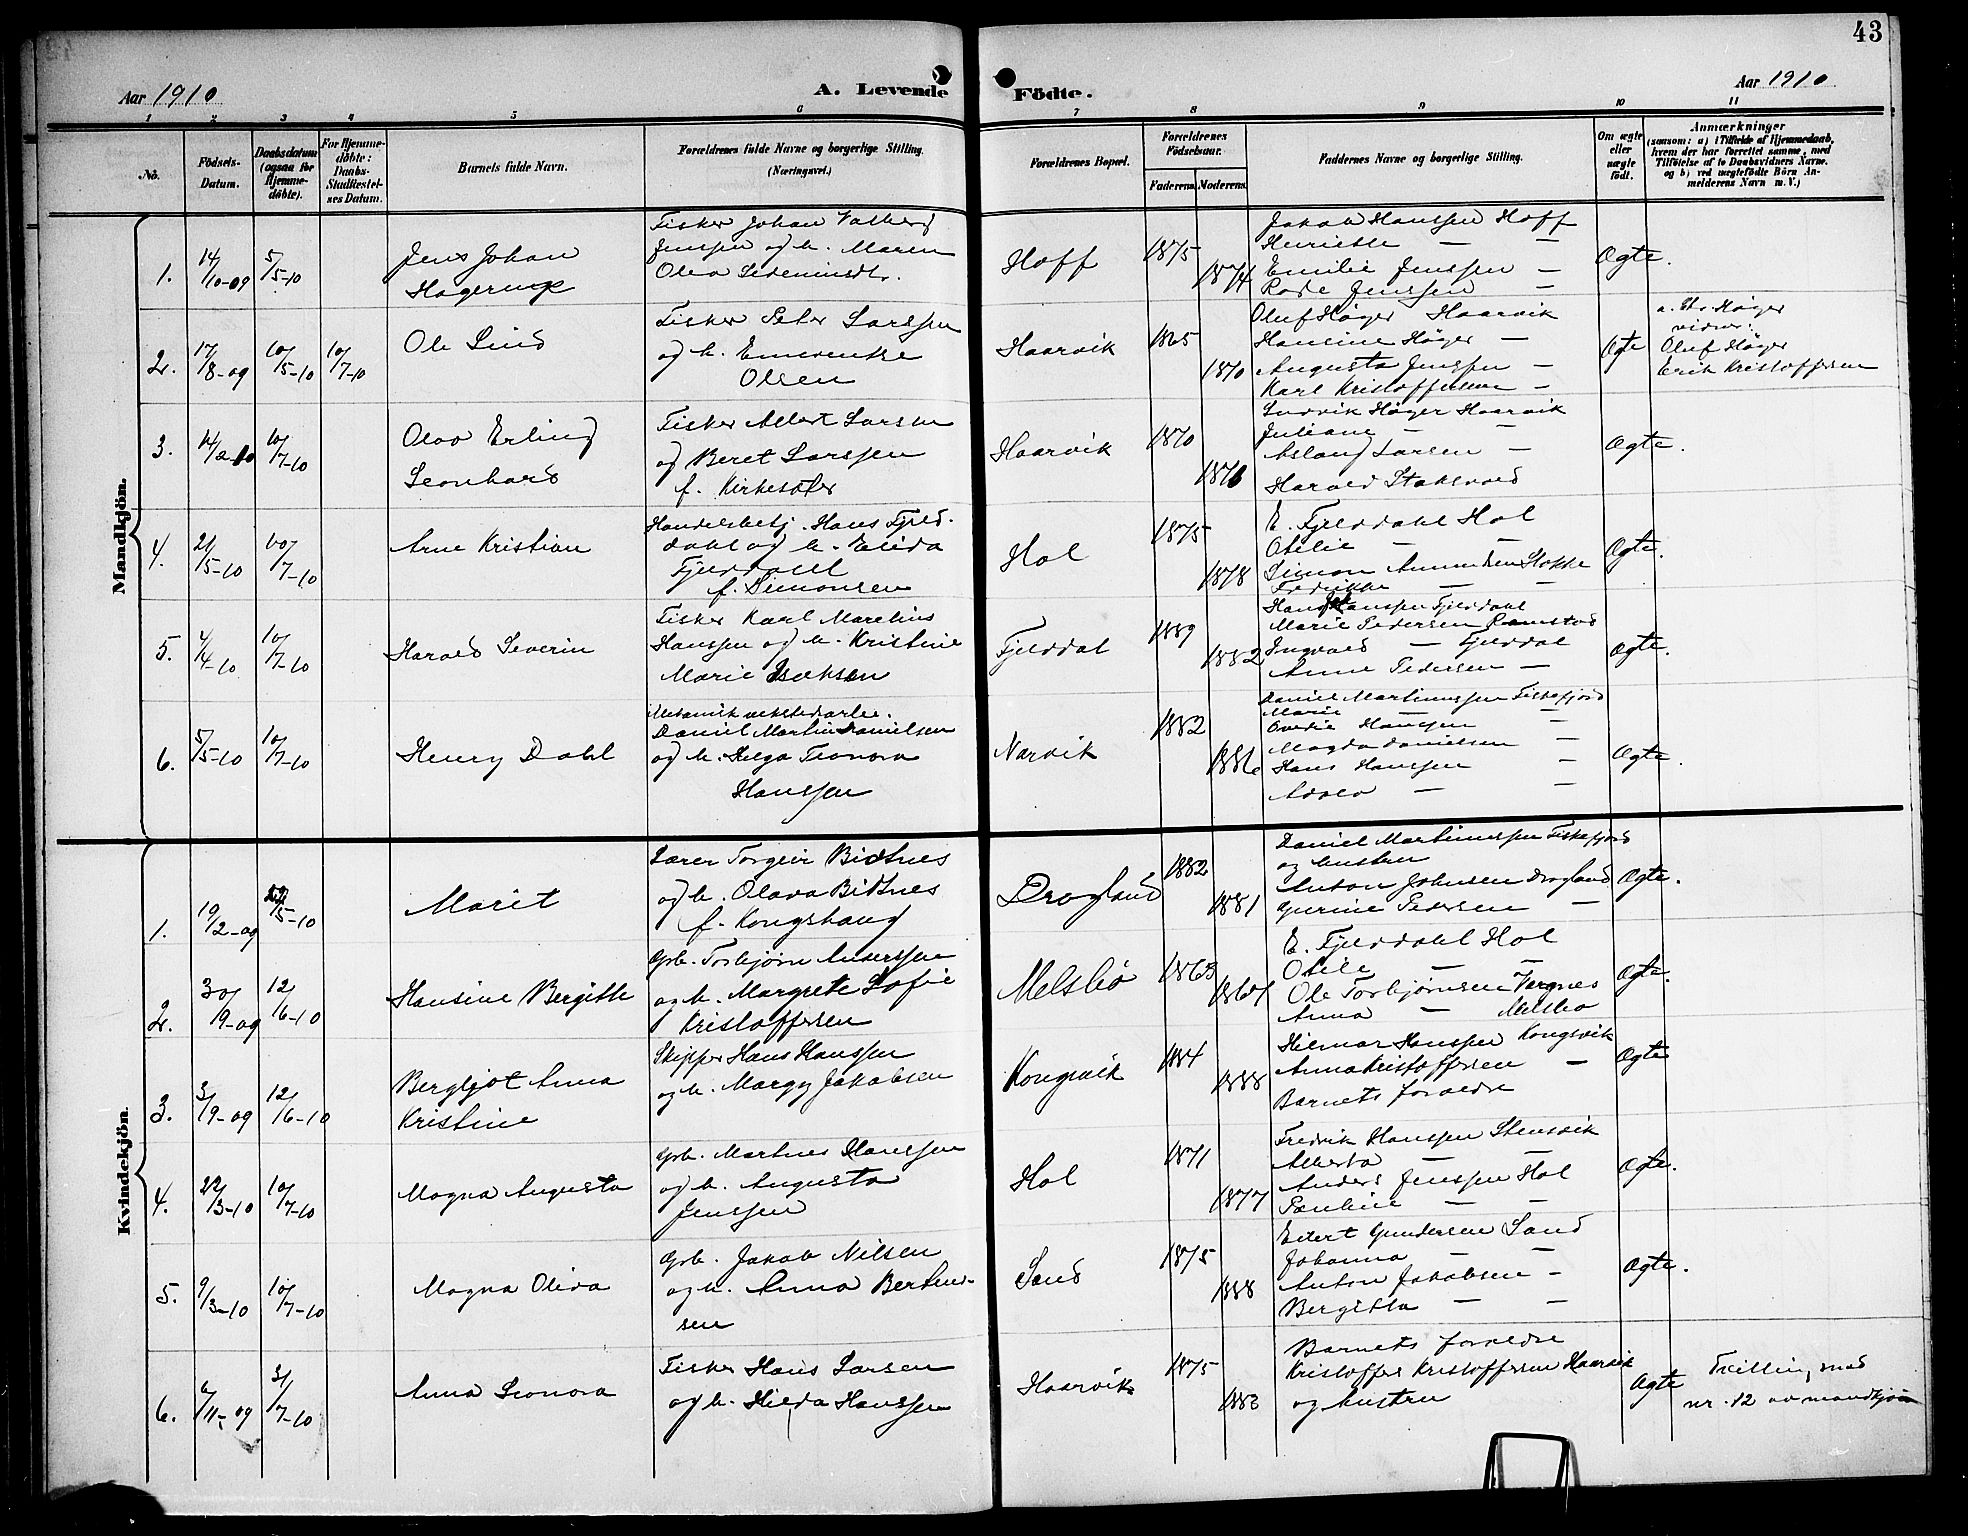 43
Aar 1910
A. Levende
Födte.
Aar 1910
1 2 3 4 5 6 7 8 9 10 11
No.
Födsels-
Datum.
Daabsdatum
(ogsaa for
Hjemme-
döbte).
For Hjemme-
döbte:
Daabs-
Stadfæstel-
ses Datum.
Barnets fulde Navn.
Forældrenes fulde Navne og borgerlige Stilling.
(Næringsvei.)
Forældrenes Bopæl.
Forældrenes
Födselsaar.
Faderens.
Moderens.
Faddernes Navne og borgerlige Stilling.
Om ægte
eller
uægte
født.
Anmærkninger
(saasom: a) i Tilfælde af Hjemmedaab,
hvem der har forrettet samme, med
Tilföielse af to Daabsvidners Navne.
og b) ved uægtefödte Börn An-
melderens Navn m. V.)
Mandkjön.
1.
14/10-09
5/5-10
Jens Johan
Hagerup
Fisker Johan
Jenssen og h. Maren
Olea
Hoff
1875
1874
Jakob Hanssen Hoff
Henriette — —
Emilie Jenssen —
Jenssen —
Ægte.
2.
17/8-09
10/5-10
10/7-10
Ole Lind
Fisker Peter Larssen
og h. Emerentse
Olsen
Haarvik
1865
1870
Oluf Høger Haarvik
Hansine Høger —
Augusta Jenssen —
Karl Kristoffersen —
Ægte
a. Høger
vidner:
Oluf Høger
Erik Kristoffersen
3.
14/2-10
10/7-10
Olav Erling
Leonhard
Fisker Albert Larsen
og Beret Larssen
f. Kirkesæter
Haarvik
1870
1876
Ludvik Høger Haarvik
Juliane — —
Aslaug Larsen —
Harald
Ægte.
4.
21/5-10
10/7-10
Arne Kristian
Handelsbetj. Hans Fjeld-
dahl og h. Elida
Fjelddahl
f. Simonsen
Hol
1875
1878
E. Fjelddahl Hol
Otelie — —
Simon Amundsen Stokke
Fredrikke — —
Ægte.
5.
4/4-10
10/7-10
Harald Severin
Fisker Karl Marelius
Hanssen og h. Kristine
Marie Isaksen
Fjelddal
1889
1882
Hans Hanssen Fjelddahl
Marie Pedersen Ramstad
Ingvald — Fjelddal
Anne Pedersen —
Ægte.
6.
5/5-10
10/7-10
Henry Dahl
Mekanisk verkstedsarbe.
Daniel Martin Danielsen
og h. Helga Leonora
Hanssen
Narvik
1882
1886
Daniel Martinussen Fiskefjord
Marie — —
Hanssen —
Magda Danielsen —
Hans Hanssen —
— —
Ægte.
Kvindekjön.
1.
19/2-09
/5-10
Marit
Lærer Torgeir Bidtnes
og h. Olava Bidtnes
f. Kongshaug
Dragland
1882
1881
Daniel Martinussen Fiskefjord
og hustru
Anton Johnsen Dragland
Gurine Pedersen —
Ægte.
2.
30/9-09
12/6-10
Hansine Bergitte
Grb. Torbjørn Anderssen
og h. Margrete Sofie
Kristoffersen
Melsbø
1863
1864
E. Fjelddahl Hol
Otile — —
Ole Torbjørnsen Vargnes
Anna — Melsbø
Ægte.
3.
3/9-09
12/6-10
Bergljot Anna
Kristine
Skipper Hans Hanssen
og h. Margy Jakobsen
Kongsvik
1884
1888
Hilmar Hanssen Kongsvik
Anna Kristoffersen —
Barnets forældre
Ægte
4.
22/3-10
10/7-10
Magna Augusta
Grb. Martines Hanssen
og h. Augusta
Jenssen
Hol
1871
1877
Fredrik Hanssen Stensvik
Alberta — —
Anders Jenssen Hol
Pauline — —
Ægte.
5.
9/3-10
10/7-10
Magna Oliva
Grb. Jakob Nilsen
og h. Anna Bertin-
sen
Sand
1875
1888
Edert Gundersen Sand
Johanna — —
Anton Jakobsen —
Bergitta — —
Ægte.
6.
6/11-09
31/7-10
Anna Leonora
Fisker Hans Larsen
og h. Hilda Hanssen
Haarvik
1875
1883
Barnets forældre
Kristoffer Kristoffersen Haarvik
og hustru
Ægte
Tvilling, med
nr. 12 av mandkjøn